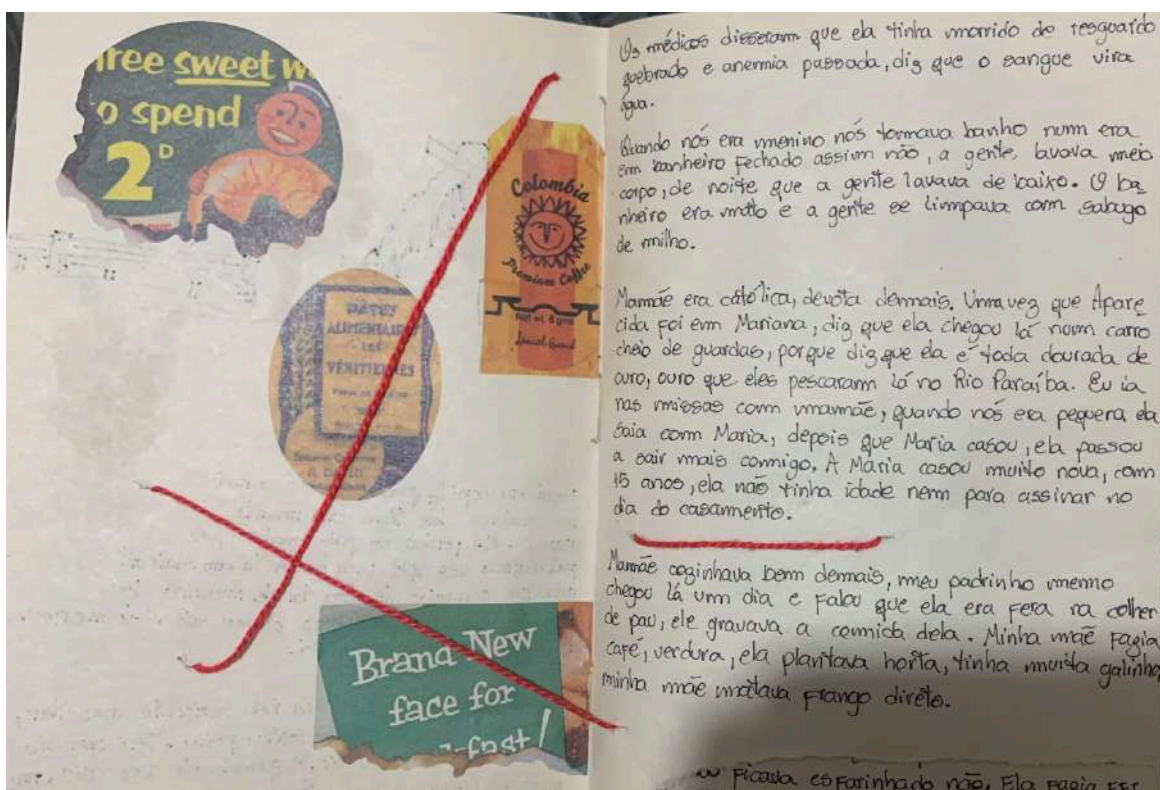 Three sweet w
o spend
2D
Colombia
Premium Coffee
Net wt. 6 gms
PATES
ALIMENTAIRES
VÉNITIENNES
Brand New
face for
fast!
Os médicos disseram que ela tinha morrido de resguardo
quebrado e anermia passada, diz que o sangue vira
água.
Quando nós era menino nós tormava banho num era
em banheiro fechado assim não, a gente lavava meio
corpo, de noite que a gente lavava de baixo. O ba
nheiro era mato e a gente se limpava com sabugo
de milho.
Mamãe era católica, devota demais. Uma vez que Apare
cida foi em Mariana, diz que ela chegou lá num carro
cheio de guardas, porque diz que ela é toda dourada de
ouro, ouro que eles pescaram lá no Rio Paraíba. Eu ia
nas missas com mamãe, quando nós era pequena ela
saia com Maria, depois que Maria casou, ela passou
a sair mais comigo. A Maria casou muito nova, com
15 anos, ela não tinha idade nem para assinar no
dia do casamento.
Mamãe cozinhava bem demais, meu padrinho memo
chegou lá um dia e falou que ela era fera na colher
de pau, ele gravava a comida dela. Minha mãe fazia
café, verdura, ela plantava horta, tinha muita galinha
minha mãe matava frango direto.
ficava esfarinhado não. Ela fazia